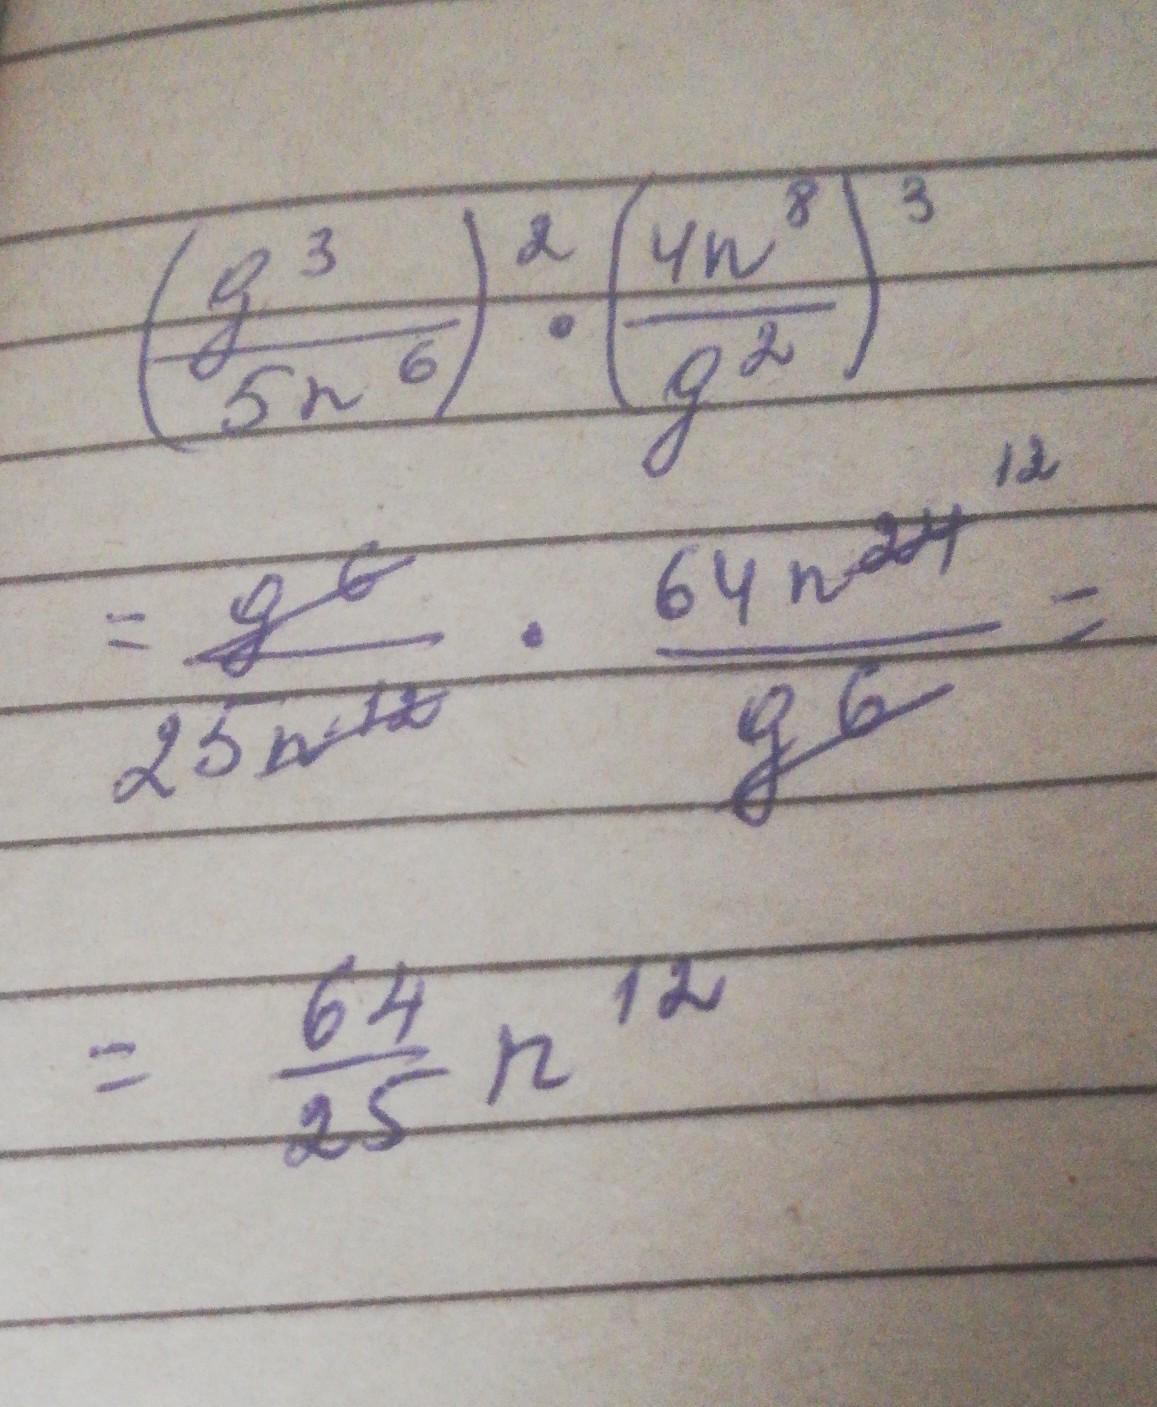 (g³/5n⁶)² · (4n⁸/g²)³
= g⁶/25n¹² · 64n²⁴ ¹²/g⁶ =
= 64/25 n¹²